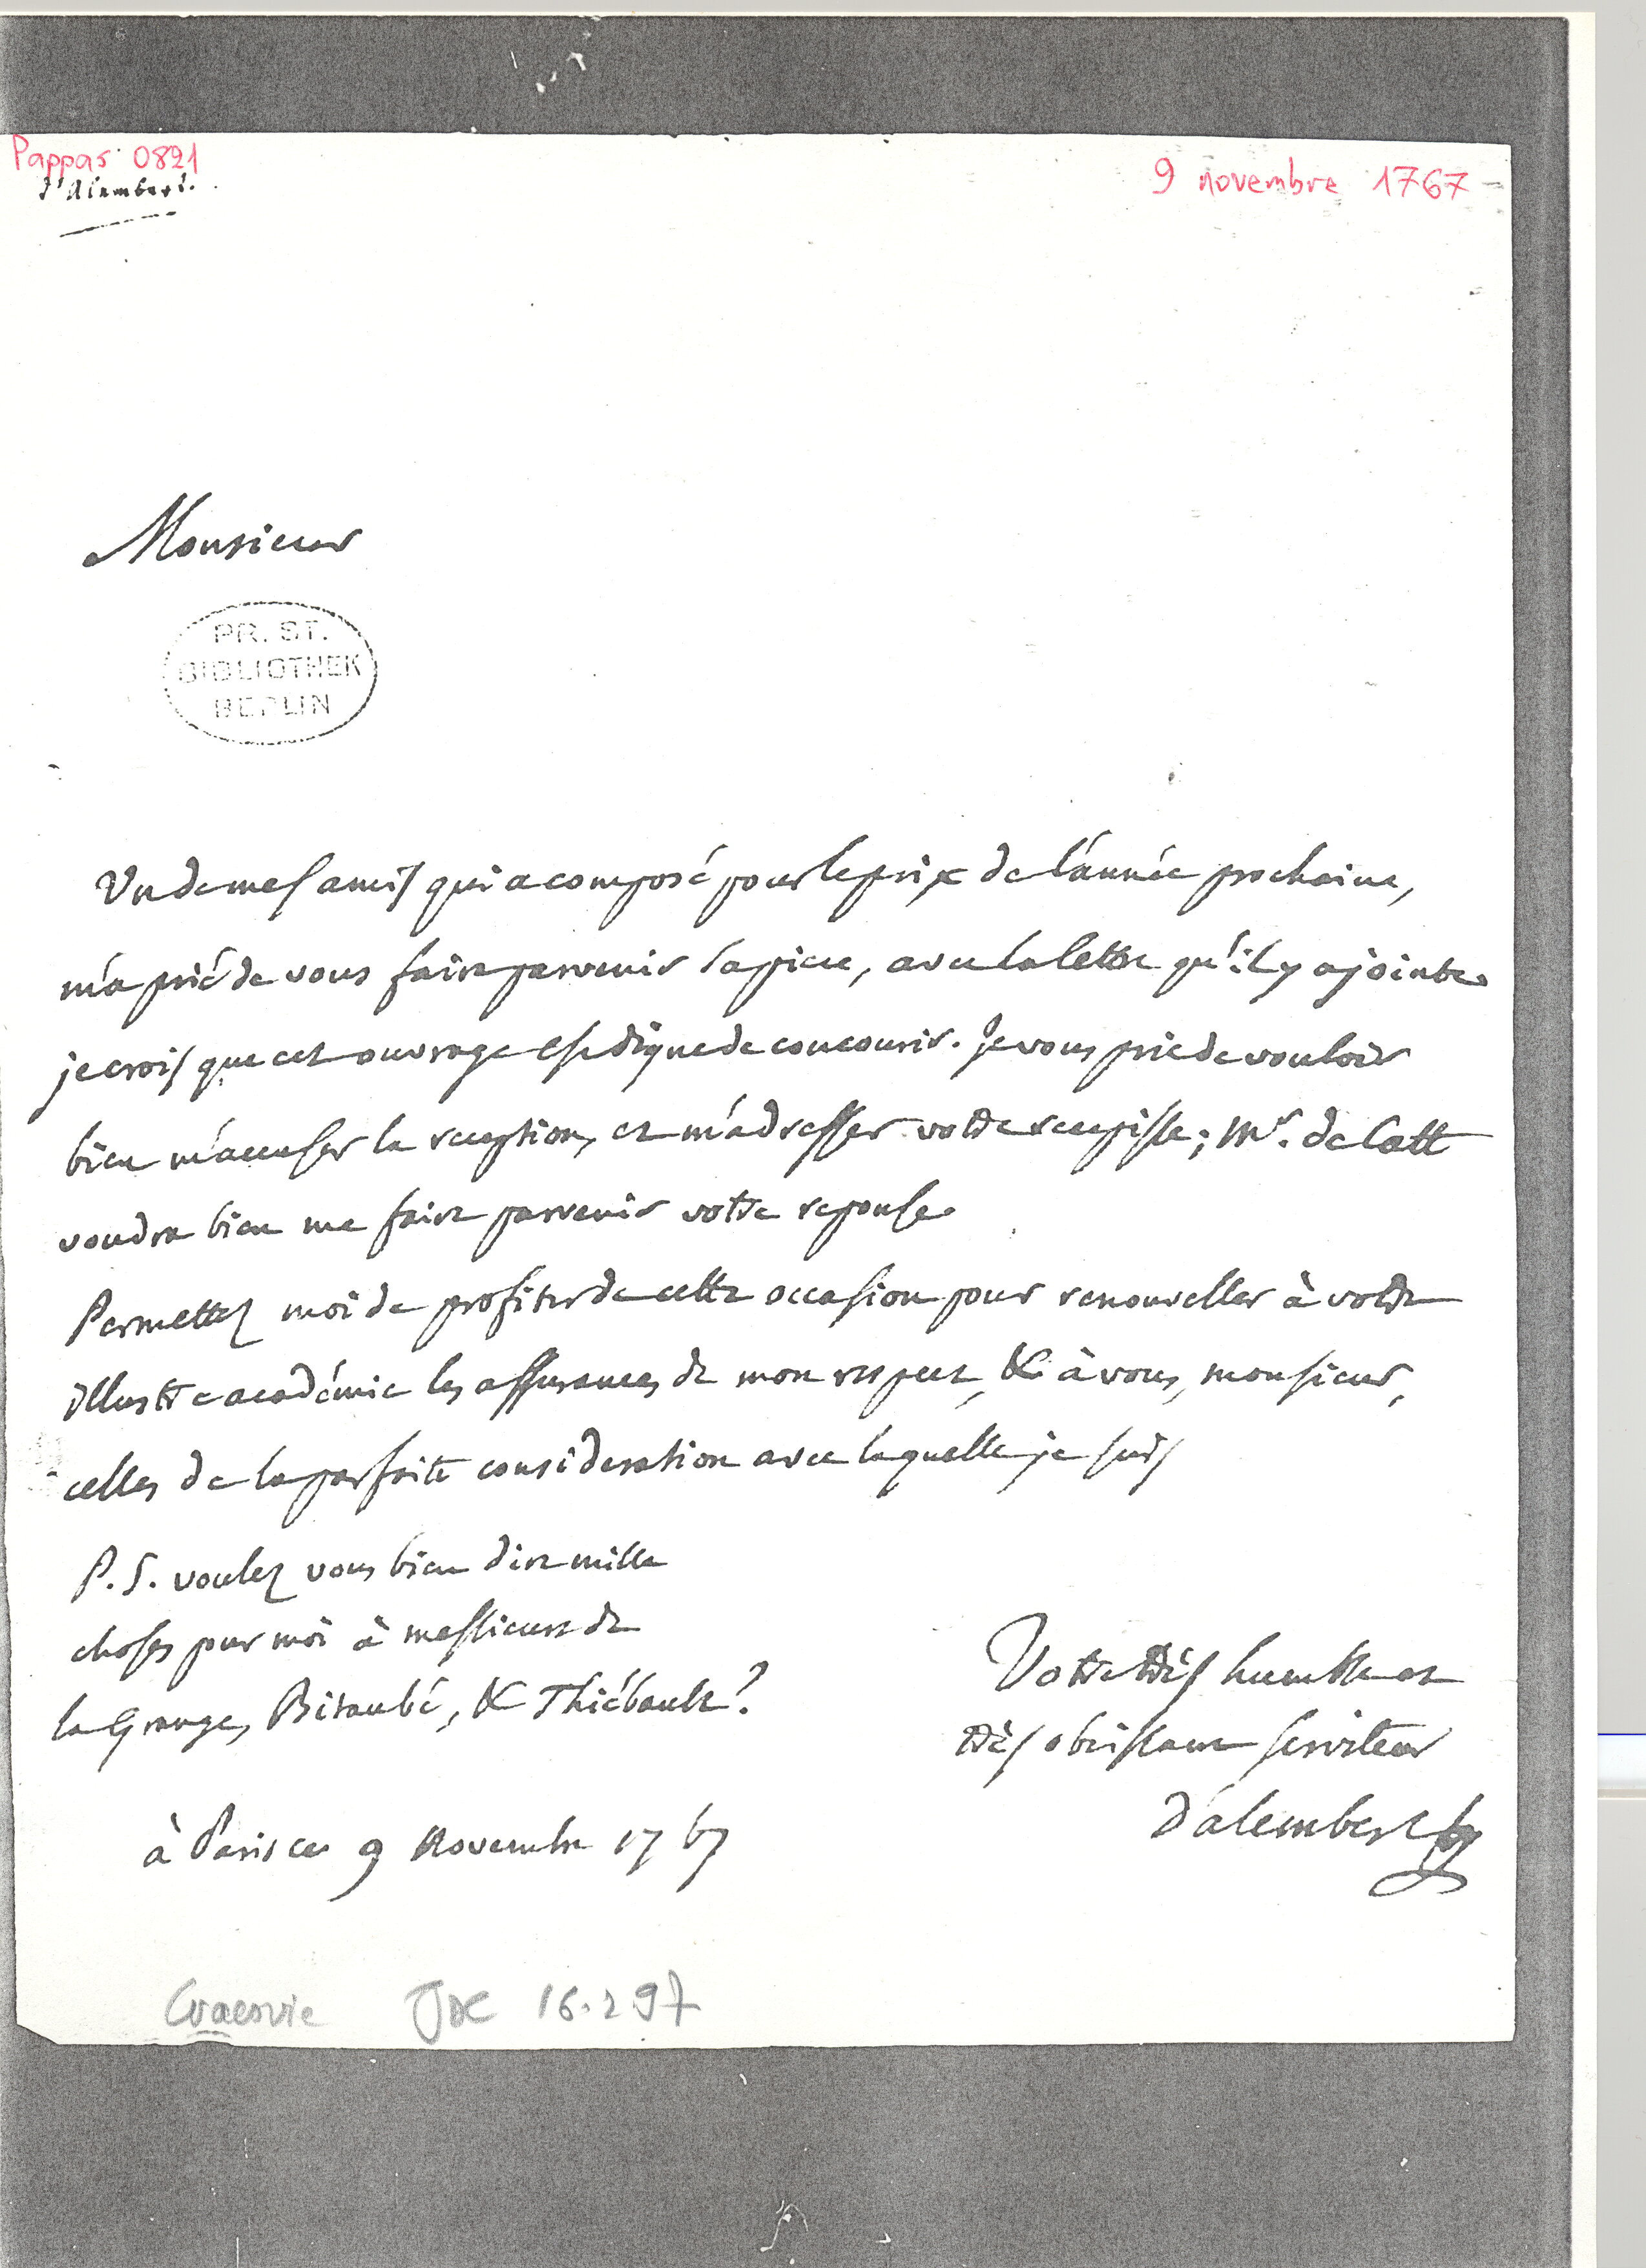 Pappas 0821
d'Alembert.
9 novembre 1767
Monsieur
PR. ST.
BIBLIOTHEK
BERLIN
Un de mes amis qui a composé pour le prix de l'année prochaine,
m'a prié de vous faire parvenir sa piece, avec la lettre qu'il y a jointe.
je crois que cet ouvrage est digne de concourir. Je vous prie de vouloir
bien m'accuser la reception, et m'adresser votre recepisse; Mr. de Catt
voudra bien me faire parvenir votre reponse.
Permettez moi de profiter de cette occasion pour renouveller à votre
illustre académie les assurances de mon respect, & à vous, monsieur,
celles de la parfaite consideration avec laquelle je suis
P.S. voulez vous bien dire mille
choses pour moi à messieurs de
la Grange, Bitaubé, & Thiébault?
Votre très humble et
très obeissant serviteur
d'alembert
à Paris ce 9 Novembre 1767
Cracovie JDC 16.2.97